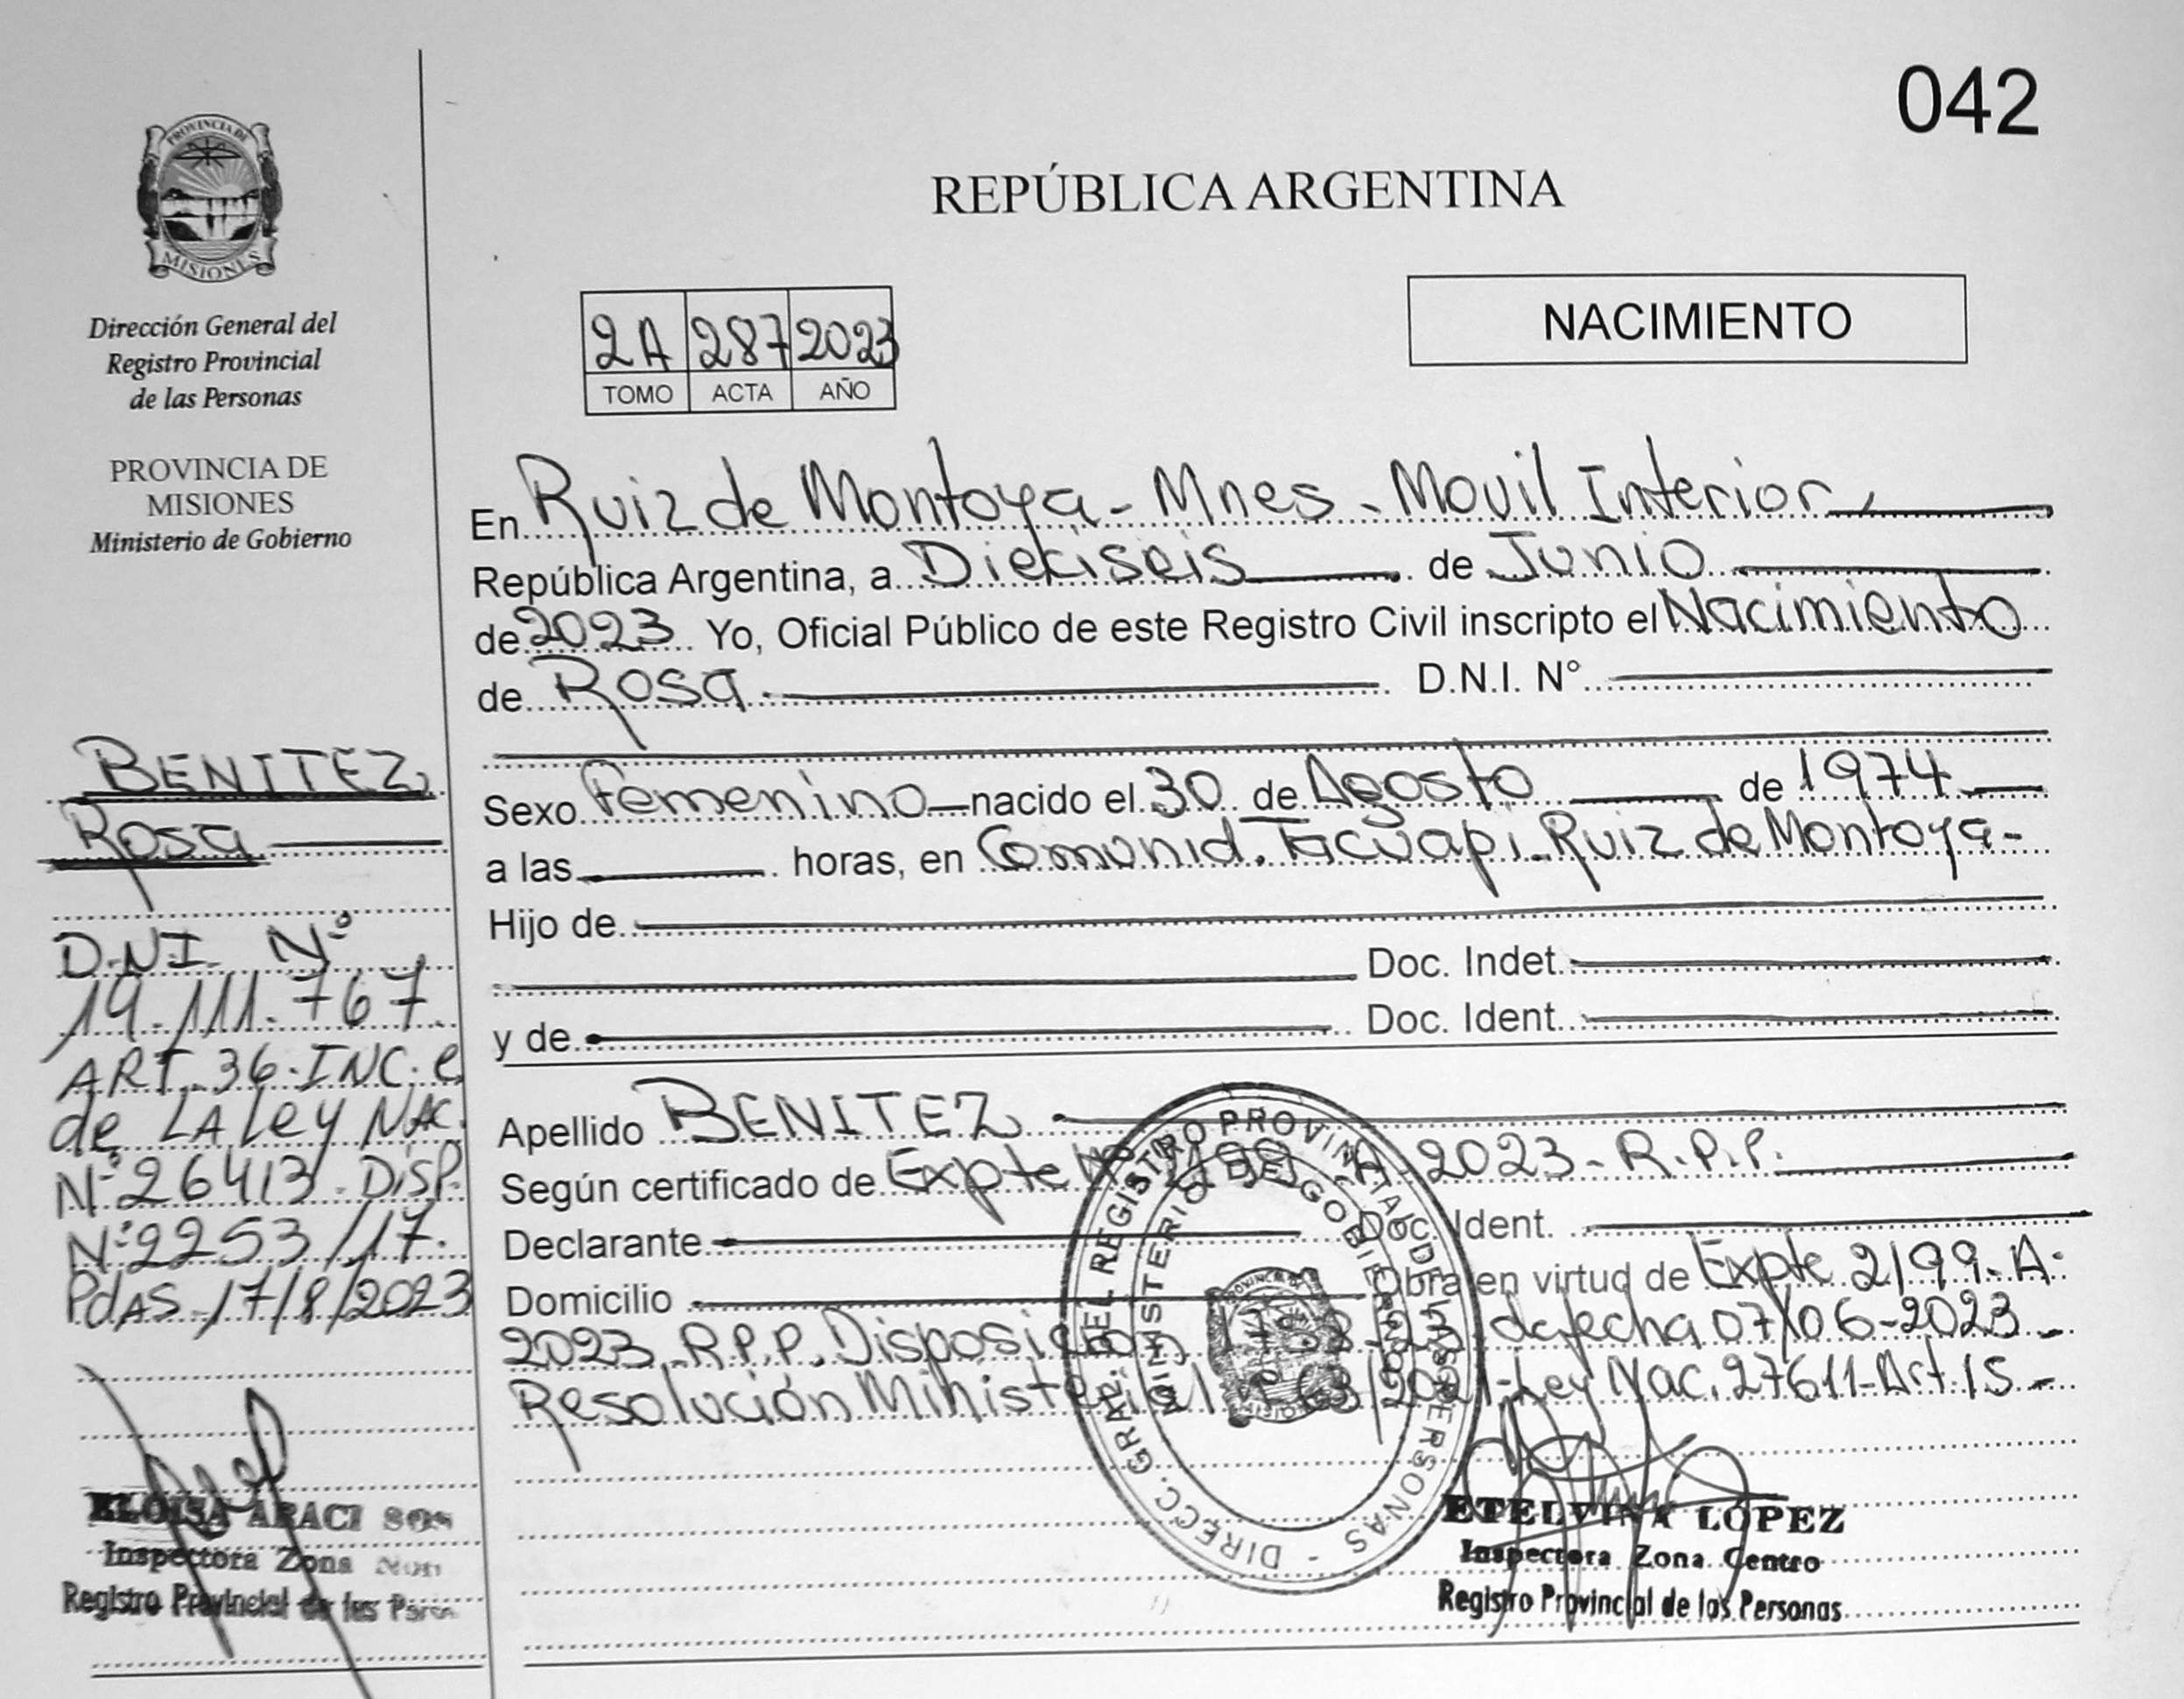 042
PROVINCIA DE
MISIONES
Dirección General del
Registro Provincial
de las Personas
PROVINCIA DE
MISIONES
Ministerio de Gobierno
BENITEZ,
Rosa
D.N.I. Nº
19.111.767
ART. 36. INC. e
de LA Ley NAC.
Nº 26413. DISP.
Nº 2253/17.
PdAS. 17/8/2023
ELOISA ARACI
Inspectora Zona
Registro Provincial de las
REPÚBLICA ARGENTINA
NACIMIENTO
2A 287 2023
TOMO ACTA AÑO
En Ruiz de Montoya - Mnes - Movil Interior
República Argentina, a Dieciseis de Junio
de 2023 Yo, Oficial Público de este Registro Civil inscripto el Nacimiento
de Rosa. D.N.I. Nº
Sexo Femenino nacido el 30 de Agosto de 1974
a las horas, en Comunid. Tacuapi - Ruiz de Montoya -
Hijo de
Doc. Indet.
y de Doc. Ident.
Apellido BENITEZ
Según certificado de Expte Nº 2199 - A - 2023 - R.P.P.
Declarante Doc. Ident.
Domicilio Obra en virtud de Expte 2199 - A -
2023 - R.P.P. Disposición de fecha 07/06-2023 -
Resolución Ministerial - Ley Nac. 27611 - Art 15 -
DIRECC. GRAL. DEL REGISTRO PROVINCIAL DE LAS PERSONAS -
MINISTERIO DE GOBIERNO
ETELVINA LÓPEZ
Inspectora Zona Centro
Registro Provincial de las Personas